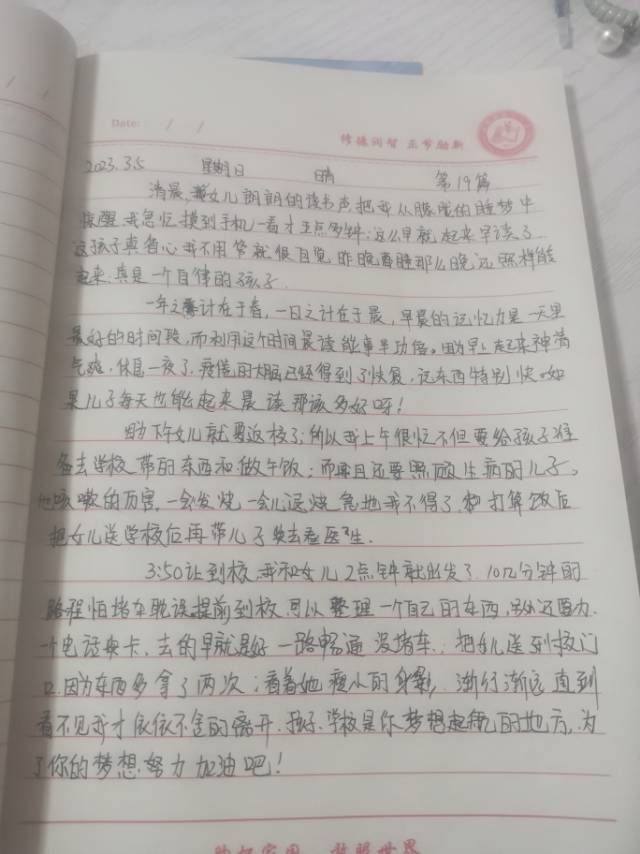 Date: / /
修德润智 正节励新
2023.3.5 星期日 晴 第19篇
清晨,女儿朗朗的读书声把我从朦胧的睡梦中
惊醒.我急忙摸到手机一看才五点多钟;这么早就起来早读了
这孩子真省心我不用管就很自觉.昨晚睡那么晚还照样能
起来.真是一个自律的孩子.
一年之计在于春,一日之计在于晨,早晨的记忆力是一天里
最好的时间段,而利用这个时间晨读能事半功倍。因为早上起来神清
气爽,休息一夜了.疲惫的大脑已经得到了恢复,记东西特别快.如
果儿子每天也能起来晨读那该多好呀!
因为下午女儿就要返校了;所以我上午很忙不但要给孩子准
备去学校带的东西和做午饭;而且还要照顾生病的儿子。
他咳嗽的厉害.一会发烧.一会儿退烧急地我不得了.打算饭后
把女儿送学校后再带儿子去看医生.
3:50让到校,我和女儿2点钟就出发了.10几分钟的
路程怕堵车耽误提前到校可以整理一个自己的东西,另外还因为
个电话卡,去的早就是好一路畅通没堵车.;把女儿送到校门
口.因为东西多拿了两次;看着她瘦小的身影,渐行渐远直到
看不见我才依依不舍的离开.孩子.学校是你梦想起航的地方,为
了你的梦想.努力加油吧!
放眼世界